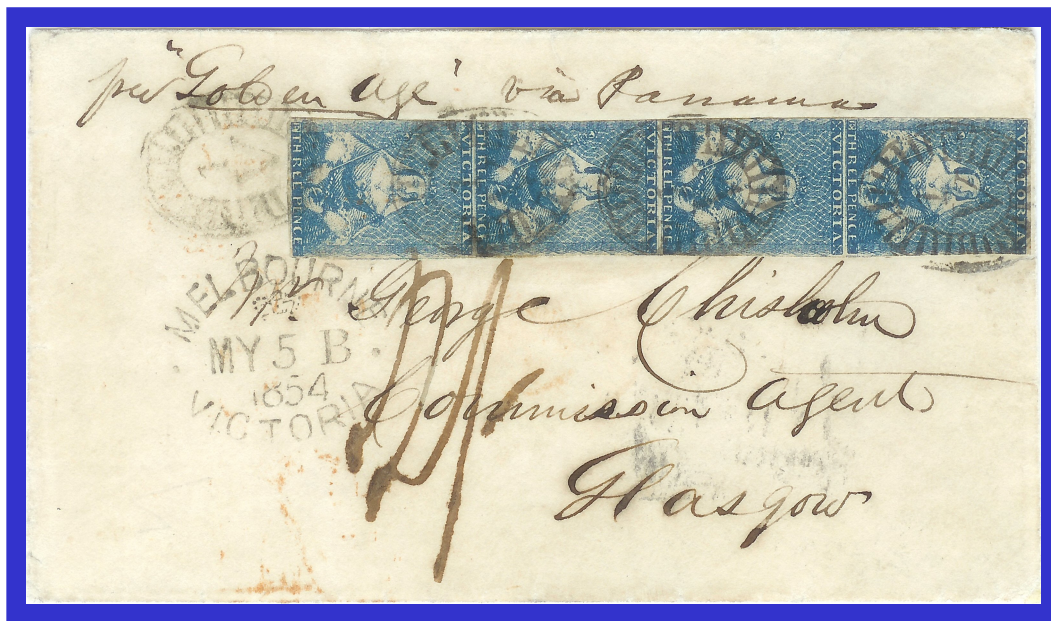 per "Golden Age" via Panama
THREE PENCE VICTORIA THREE PENCE VICTORIA THREE PENCE VICTORIA THREE PENCE VICTORIA
MELBOURNE
MY 5 B
1854
VICTORIA
Mr George Chisholm
Commission Agent
Glasgow